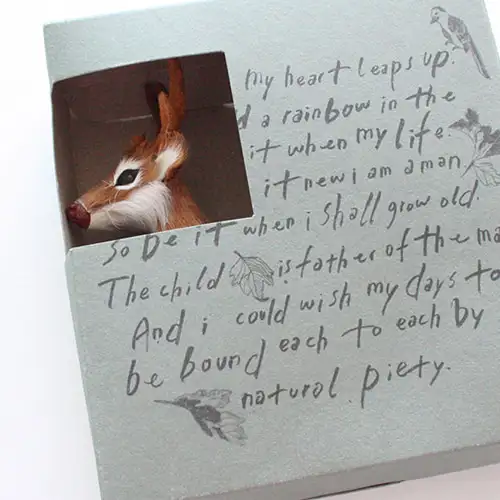 my heart leaps up.
d a rainbow in the
it when my life.
it new i am a man,
So be it when i shall grow old.
The child is father of the ma
And i could wish my days to
be bound each to each by
natural piety.